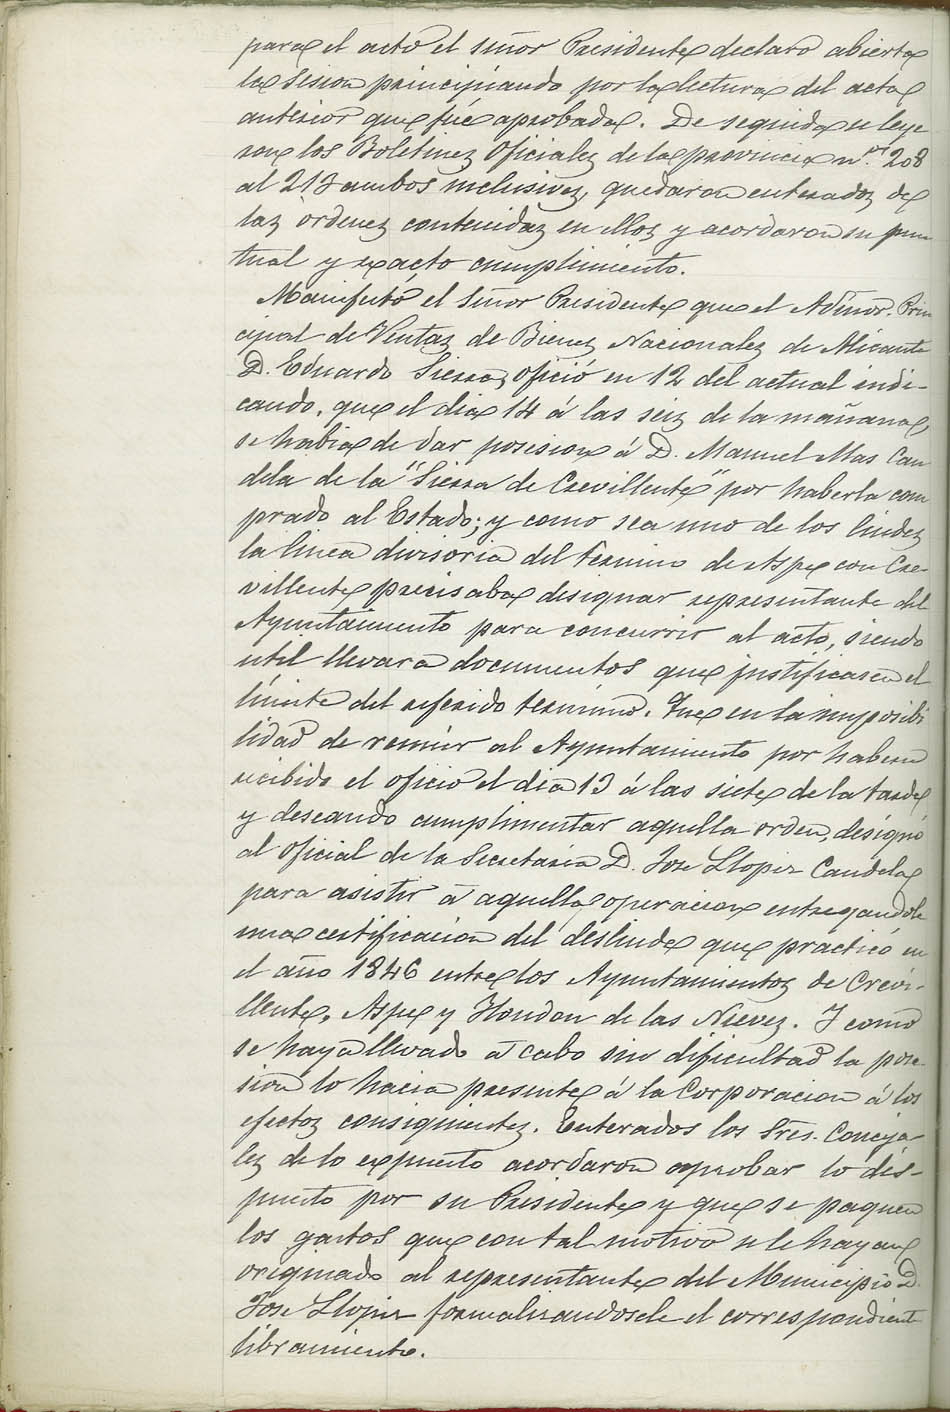 para el acto el señor Presidente declaró abierta
la sesion principiando por la lectura del acta
anterior que fué aprobada. De seguida se leye
ron los Boletines Oficiales de la provincia n.os 208
al 213 ambos inclusives, quedaron enterados de
las ordenes contenidas en ellos y acordaron su pun
tual y exacto cumplimiento.
Manifestó el Señor Presidente que el Admor. Prin
cipal de Ventas de Bienes Nacionales de Alicante
D. Eduardo Sierra, ofició en 12 del actual indi-
cando, que el dia 14 á las seis de la mañana,
se habia de dar posesion á D. Manuel Mas Can
dela de la "Sierra de Crevillente" por haberla com
prado al Estado; y como sea uno de los lindes
la linea divisoria del termino de Aspe con Cre-
villente, precisaba designar representante del
Ayuntamiento para concurrir al acto, siendo
util llevara documentos que justificasen el
limite del referido termino. Que en la imposibi
lidad de reunir al Ayuntamiento por haberse
recibido el oficio el dia 13 á las siete de la tarde
y deseando cumplimentar aquella orden, designó
al oficial de la Secretaria D. Jose Llopis Candela,
para asistir á aquella operacion entregandole
una certificacion del deslinde que practicó en
el año 1846 entre los Ayuntamientos de Crevi-
llente, Aspe y Hondon de las Nieves. Y como
se haya llevado á cabo sin dificultad la pose-
sion lo hacia presente á la Corporacion á los
efectos consiguientes. Enterados los Sres. Conceja-
les de lo expuesto acordaron aprobar lo dis-
puesto por su Presidente y que se paguen
los gastos que con tal motivo se le hayan
originado al representante del Municipio D.
Jose Llopis formalizandosele el correspondiente
libramiento.